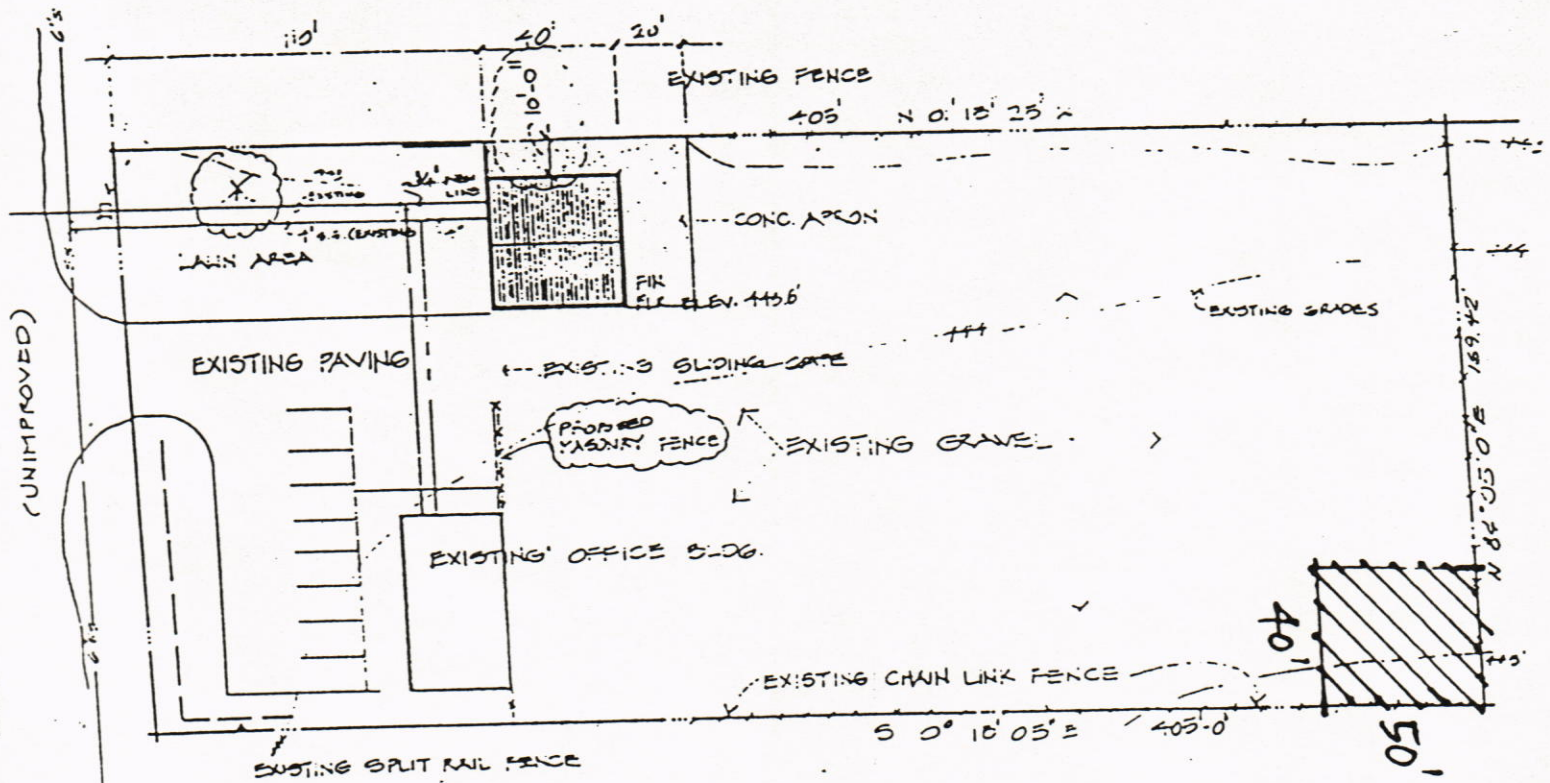 110'
40'
20'
10'-0"
EXISTING FENCE
405'
CONC. APRON
EXISTING
NEW
LINE
(EXISTING)
LAWN AREA
FIN
FLR ELEV. 445.6'
EXISTING GRADES
(UNIMPROVED)
EXISTING PAVING
EXISTING SLIDING GATE
444
PROPOSED
MASONRY FENCE
EXISTING GRAVEL
EXISTING OFFICE BLDG.
40'
EXISTING CHAIN LINK FENCE
445'
S 0° 18' 05" E
405'-0"
50'
EXISTING SPLIT RAIL FENCE